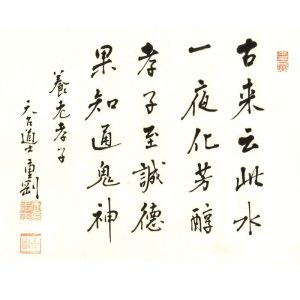 古来云此水
一夜化芳醇
孝子至誠徳
果知通鬼神
養老孝子
天台道士重剛